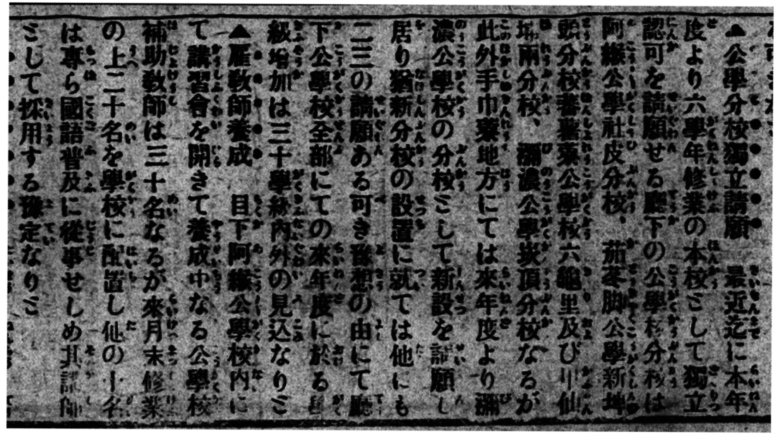 ▲公學分校獨立請願　最近迄に本年
度より六學年修業の本校として獨立
認可を請願せる廳下の公學校分校は
阿緱公學社皮分校、茄苳脚公學新埤
頭分校蕃薯藔公學校六龜里及び甲仙
埔兩分校、彌濃公學崁頂分校なるが
此外手巾藔地方にては來年度より彌
濃公學校の分校として新設を請願し
居り猶新分校の設置に就ては他にも
二三の請願ある可き豫想の由にて廳
下公學校全部にての來年度に於る
級增加は三十學級內外の見込なりと
▲雇教師養成　目下阿緱公學校內に
て講習會を開きて養成中なる公學校
補助教師は三十名なるが來月末修業
の上二十名を學校に配置し他の十名
は專ら國語普及に從事せしめ其講師
として採用する豫定なりと